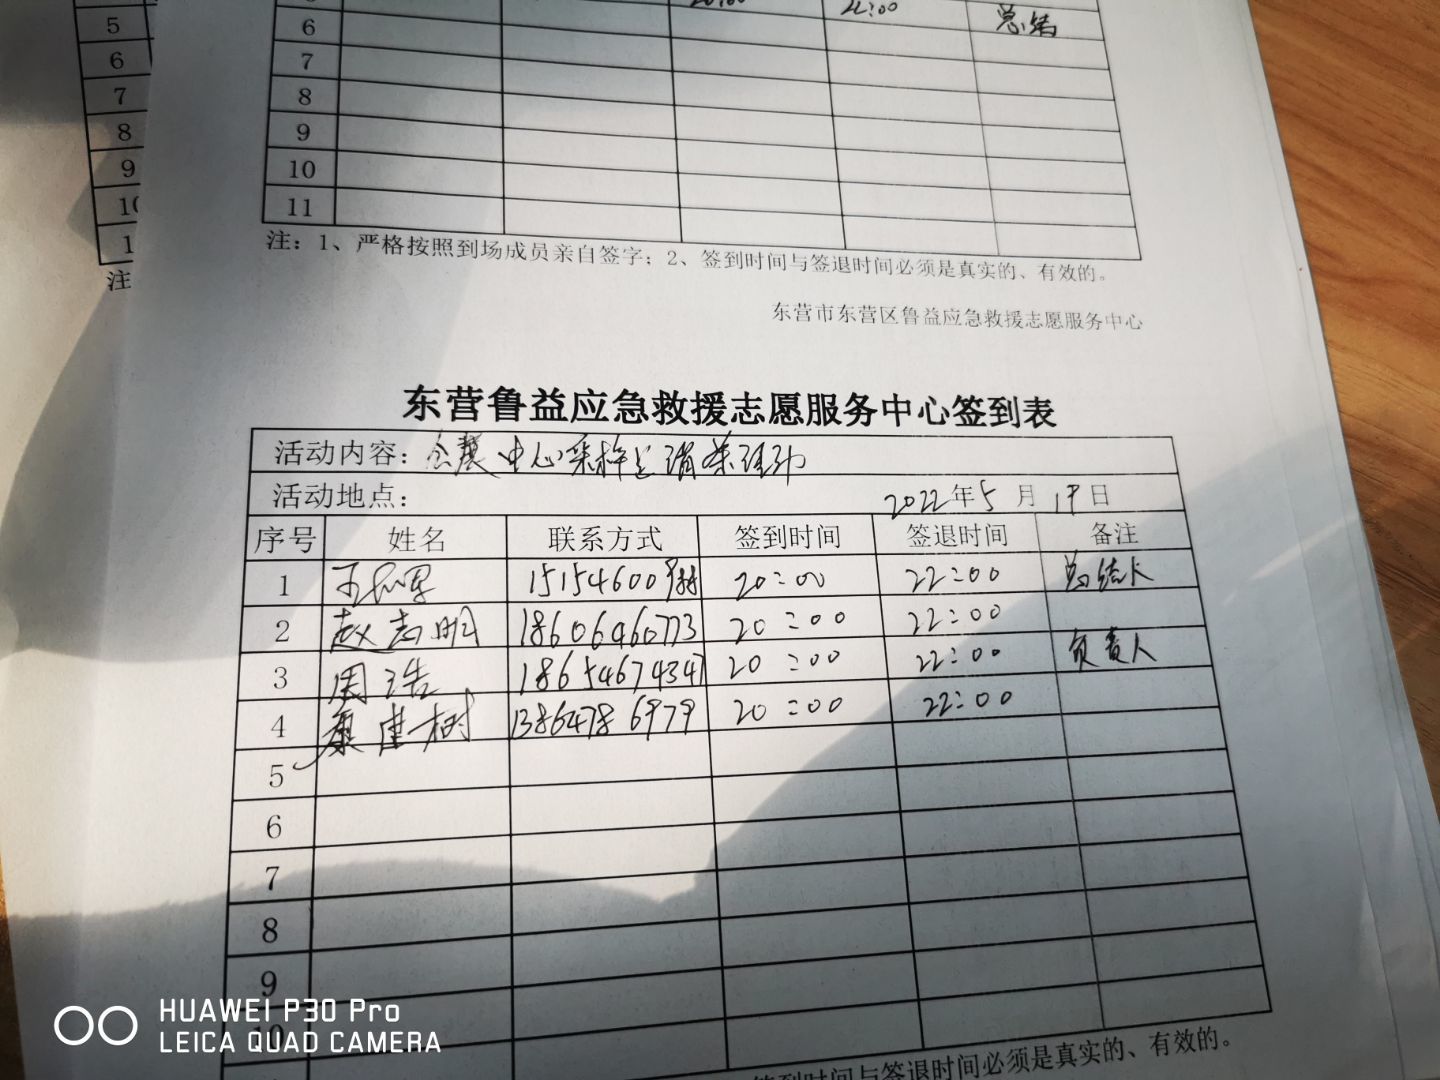 5
6
7
8
9
10
1
注
6 20:00 22:00 总结
7
8
9
10
11
注：1、严格按照到场成员亲自签字；2、签到时间与签退时间必须是真实的、有效的。
东营市东营区鲁益应急救援志愿服务中心
东营鲁益应急救援志愿服务中心签到表
活动内容：会展中心采样点消杀活动
活动地点： 2022年5月19日
序号 姓名 联系方式 签到时间 签退时间 备注
1 15154600 20:00 22:00 总结
2 赵志明 18606460773 20:00 22:00
3 周浩 18654674347 20:00 22:00 负责人
4 康建树 13864786979 20:00 22:00
5
6
7
8
9
10
签到时间与签退时间必须是真实的、有效的。
HUAWEI P30 Pro
LEICA QUAD CAMERA